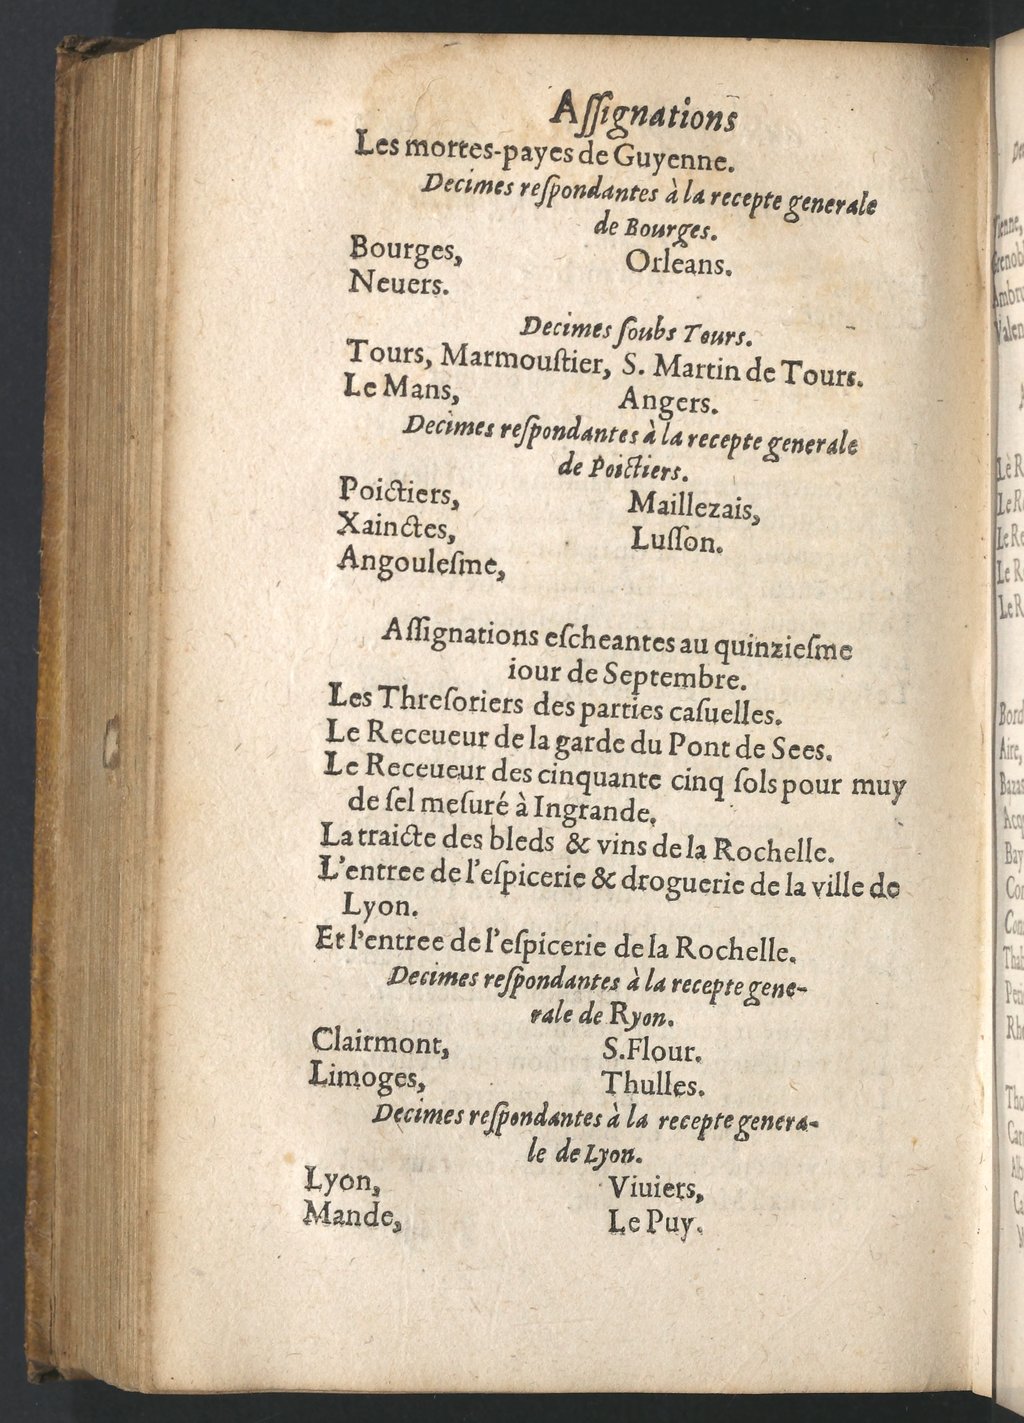 Aſſignations
Les mortes-payes de Guyenne.
Decimes reſpondantes à la recepte generale
de Bourges.
Bourges, Orleans.
Neuers.
Decimes ſoubs Tours.
Tours, Marmouſtier, S. Martin de Tours.
Le Mans, Angers.
Decimes reſpondantes à la recepte generale
de Poictiers.
Poictiers, Maillezais,
Xainctes, Luſſon.
Angouleſme,
Aſſignations eſcheantes au quinzieſme
iour de Septembre.
Les Threſoriers des parties caſuelles.
Le Receueur de la garde du Pont de Sees.
Le Receueur des cinquante cinq ſols pour muy
de ſel meſuré à Ingrande.
La traicte des bleds & vins de la Rochelle.
L'entree de l'eſpicerie & droguerie de la ville de
Lyon.
Et l'entree de l'eſpicerie de la Rochelle.
Decimes reſpondantes à la recepte gene-
rale de Ryon.
Clairmont, S.Flour.
Limoges, Thulles.
Decimes reſpondantes à la recepte genera-
le de Lyon.
Lyon, Viuiers,
Mande, Le Puy.